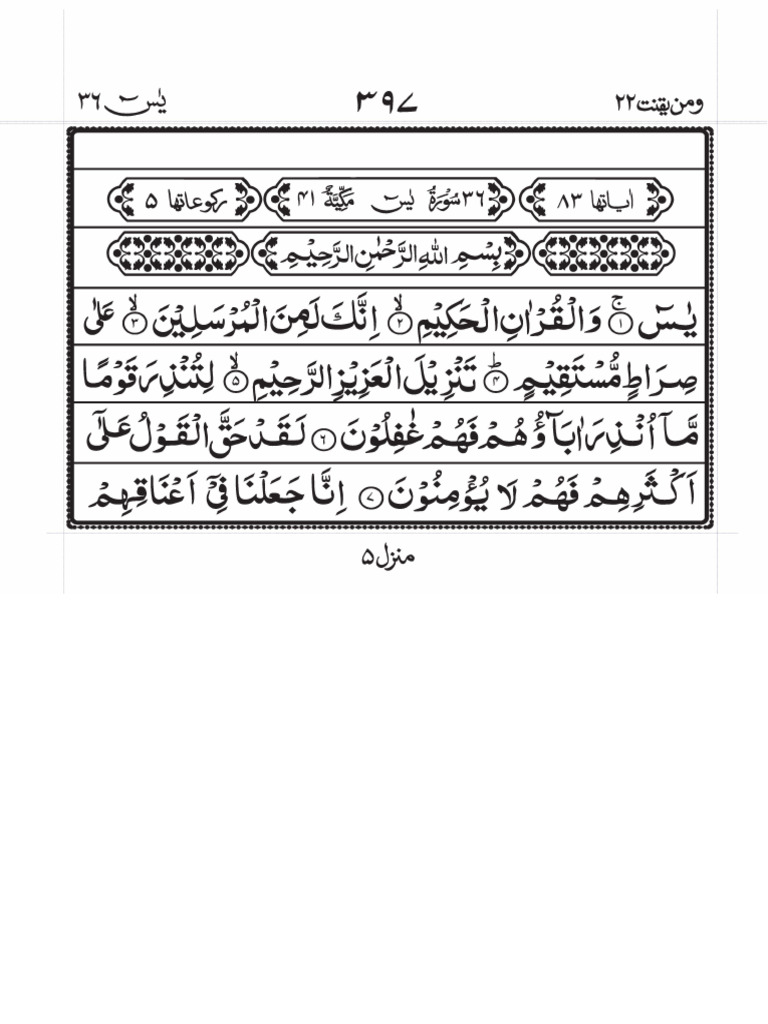 ومن یقنت ۲۲ ۳۹۷ یٰسٓ ۳۶
اٰیاتها ۸۳ ۳۶ سُوْرَةُ یٰسٓ مَكِّیَّةٌ ۴۱ ركوعاتها ۵
بِسْمِ اللهِ الرَّحْمٰنِ الرَّحِیْمِ
یٰسٓ ۚ﴿۱﴾ وَالْقُرْاٰنِ الْحَكِیْمِ ۙ﴿۲﴾ اِنَّكَ لَمِنَ الْمُرْسَلِیْنَ ۙ﴿۳﴾ عَلٰی
صِرَاطٍ مُّسْتَقِیْمٍ ؕ﴿۴﴾ تَنْزِیْلَ الْعَزِیْزِ الرَّحِیْمِ ۙ﴿۵﴾ لِتُنْذِرَ قَوْمًا
مَّاۤ اُنْذِرَ اٰبَآؤُهُمْ فَهُمْ غٰفِلُوْنَ ﴿۶﴾ لَقَدْ حَقَّ الْقَوْلُ عَلٰۤی
اَكْثَرِهِمْ فَهُمْ لَا یُؤْمِنُوْنَ ﴿۷﴾ اِنَّا جَعَلْنَا فِیْۤ اَعْنَاقِهِمْ
منزل ۵